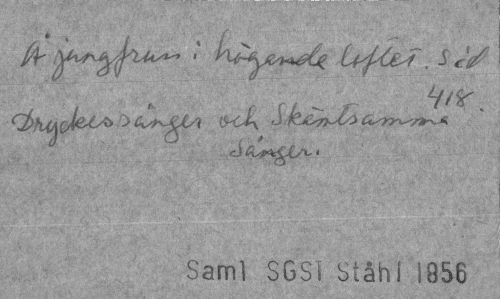 Å jungfrun i högande loftet. Sid
418.
Dryckessånger och Skämtsamma
Sånger.
Saml SGS1 Ståhl 1856